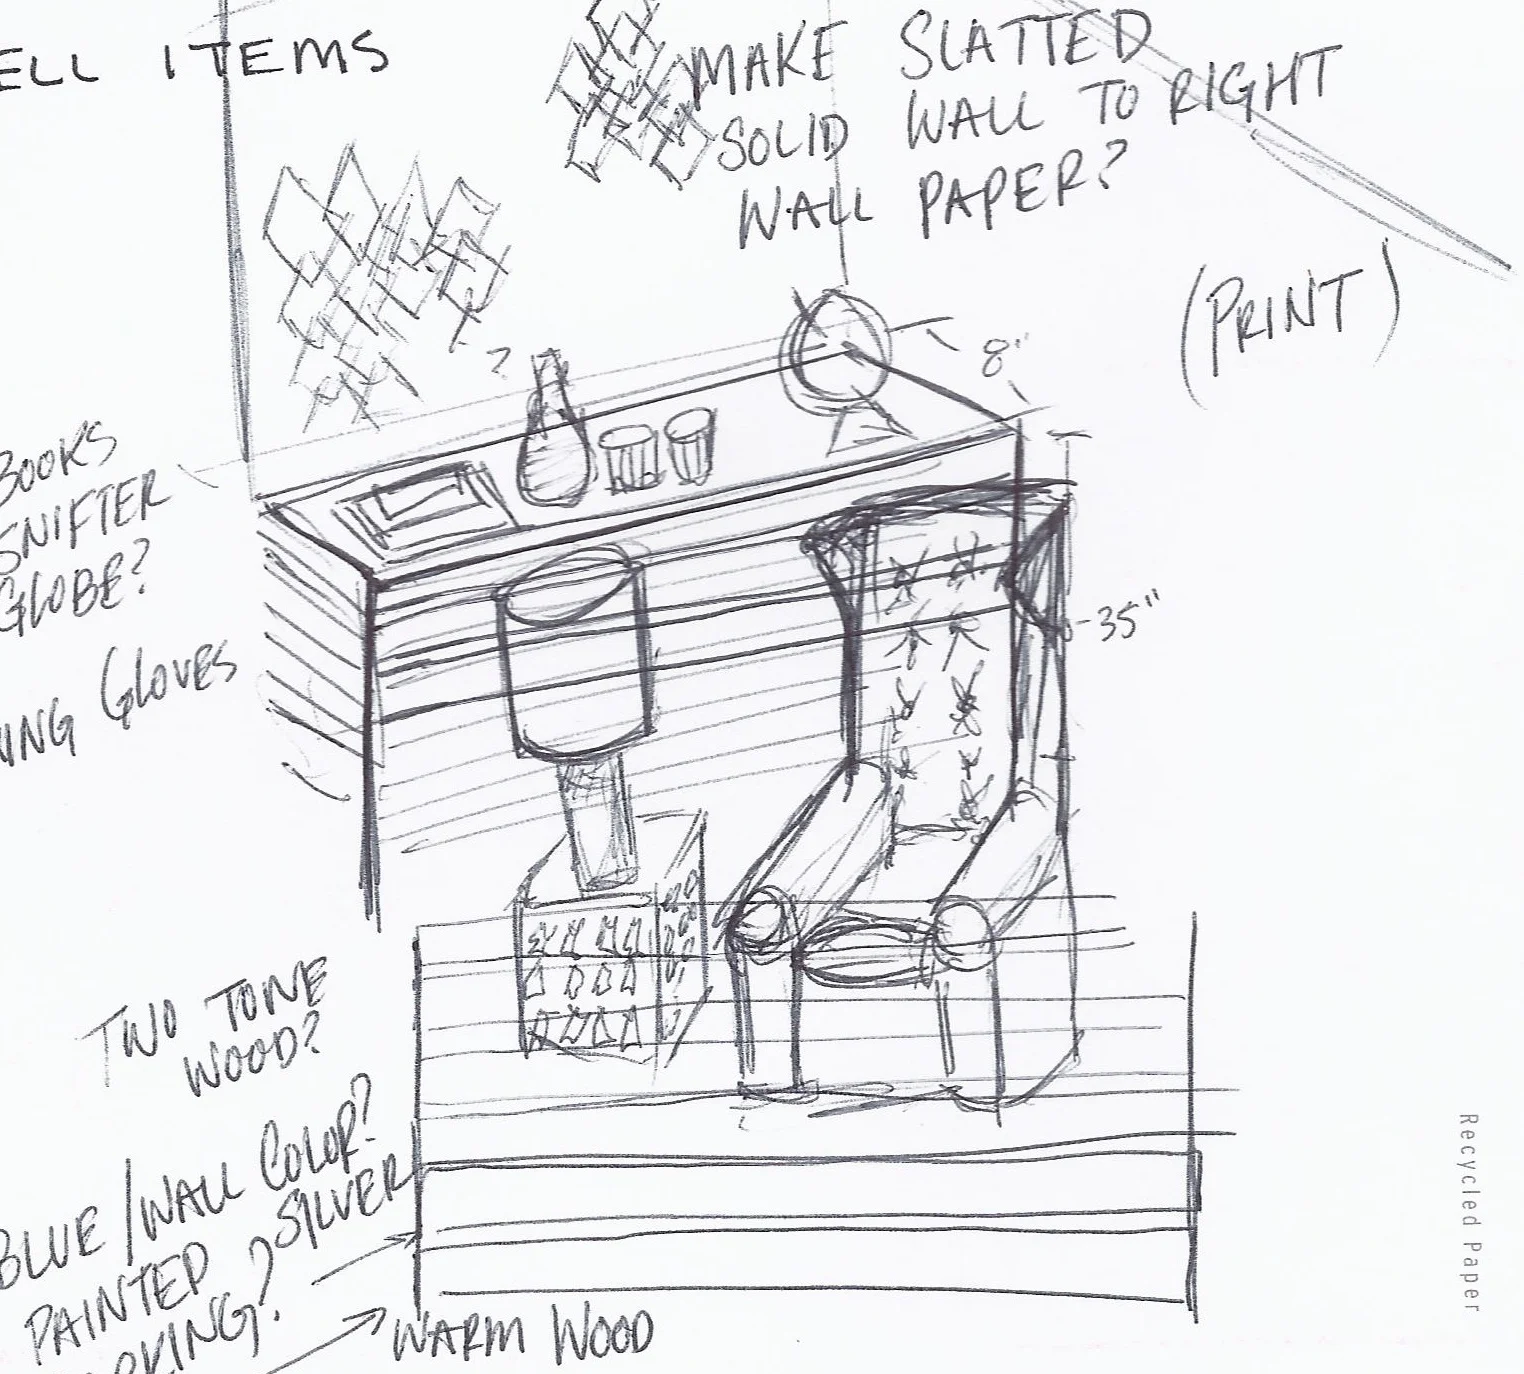 ELL ITEMS
MAKE SLATTED
SOLID WALL TO RIGHT
WALL PAPER?
(PRINT)
?
8"
BOOKS
SNIFTER
GLOBE?
35"
ING GLOVES
TWO TONE
WOOD?
BLUE/WALL COLOR?
PAINTED SILVER
RKING?
WARM WOOD
Recycled Paper